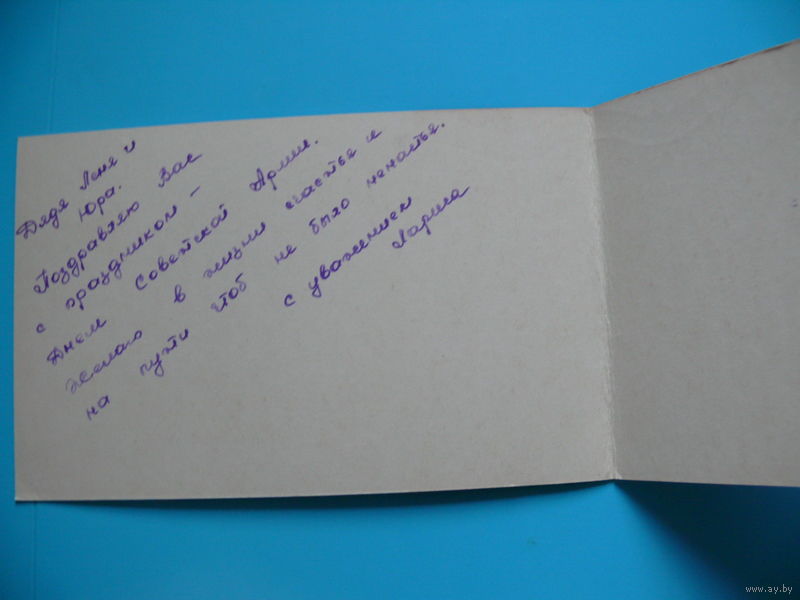 Дядя Леня и
Юра.
Поздравляю Вас
с праздником –
Днем Советской Армии.
желаю в жизни счастья и
на пути чтоб не было ненастья.
с уважением
Лариса
www.ay.by